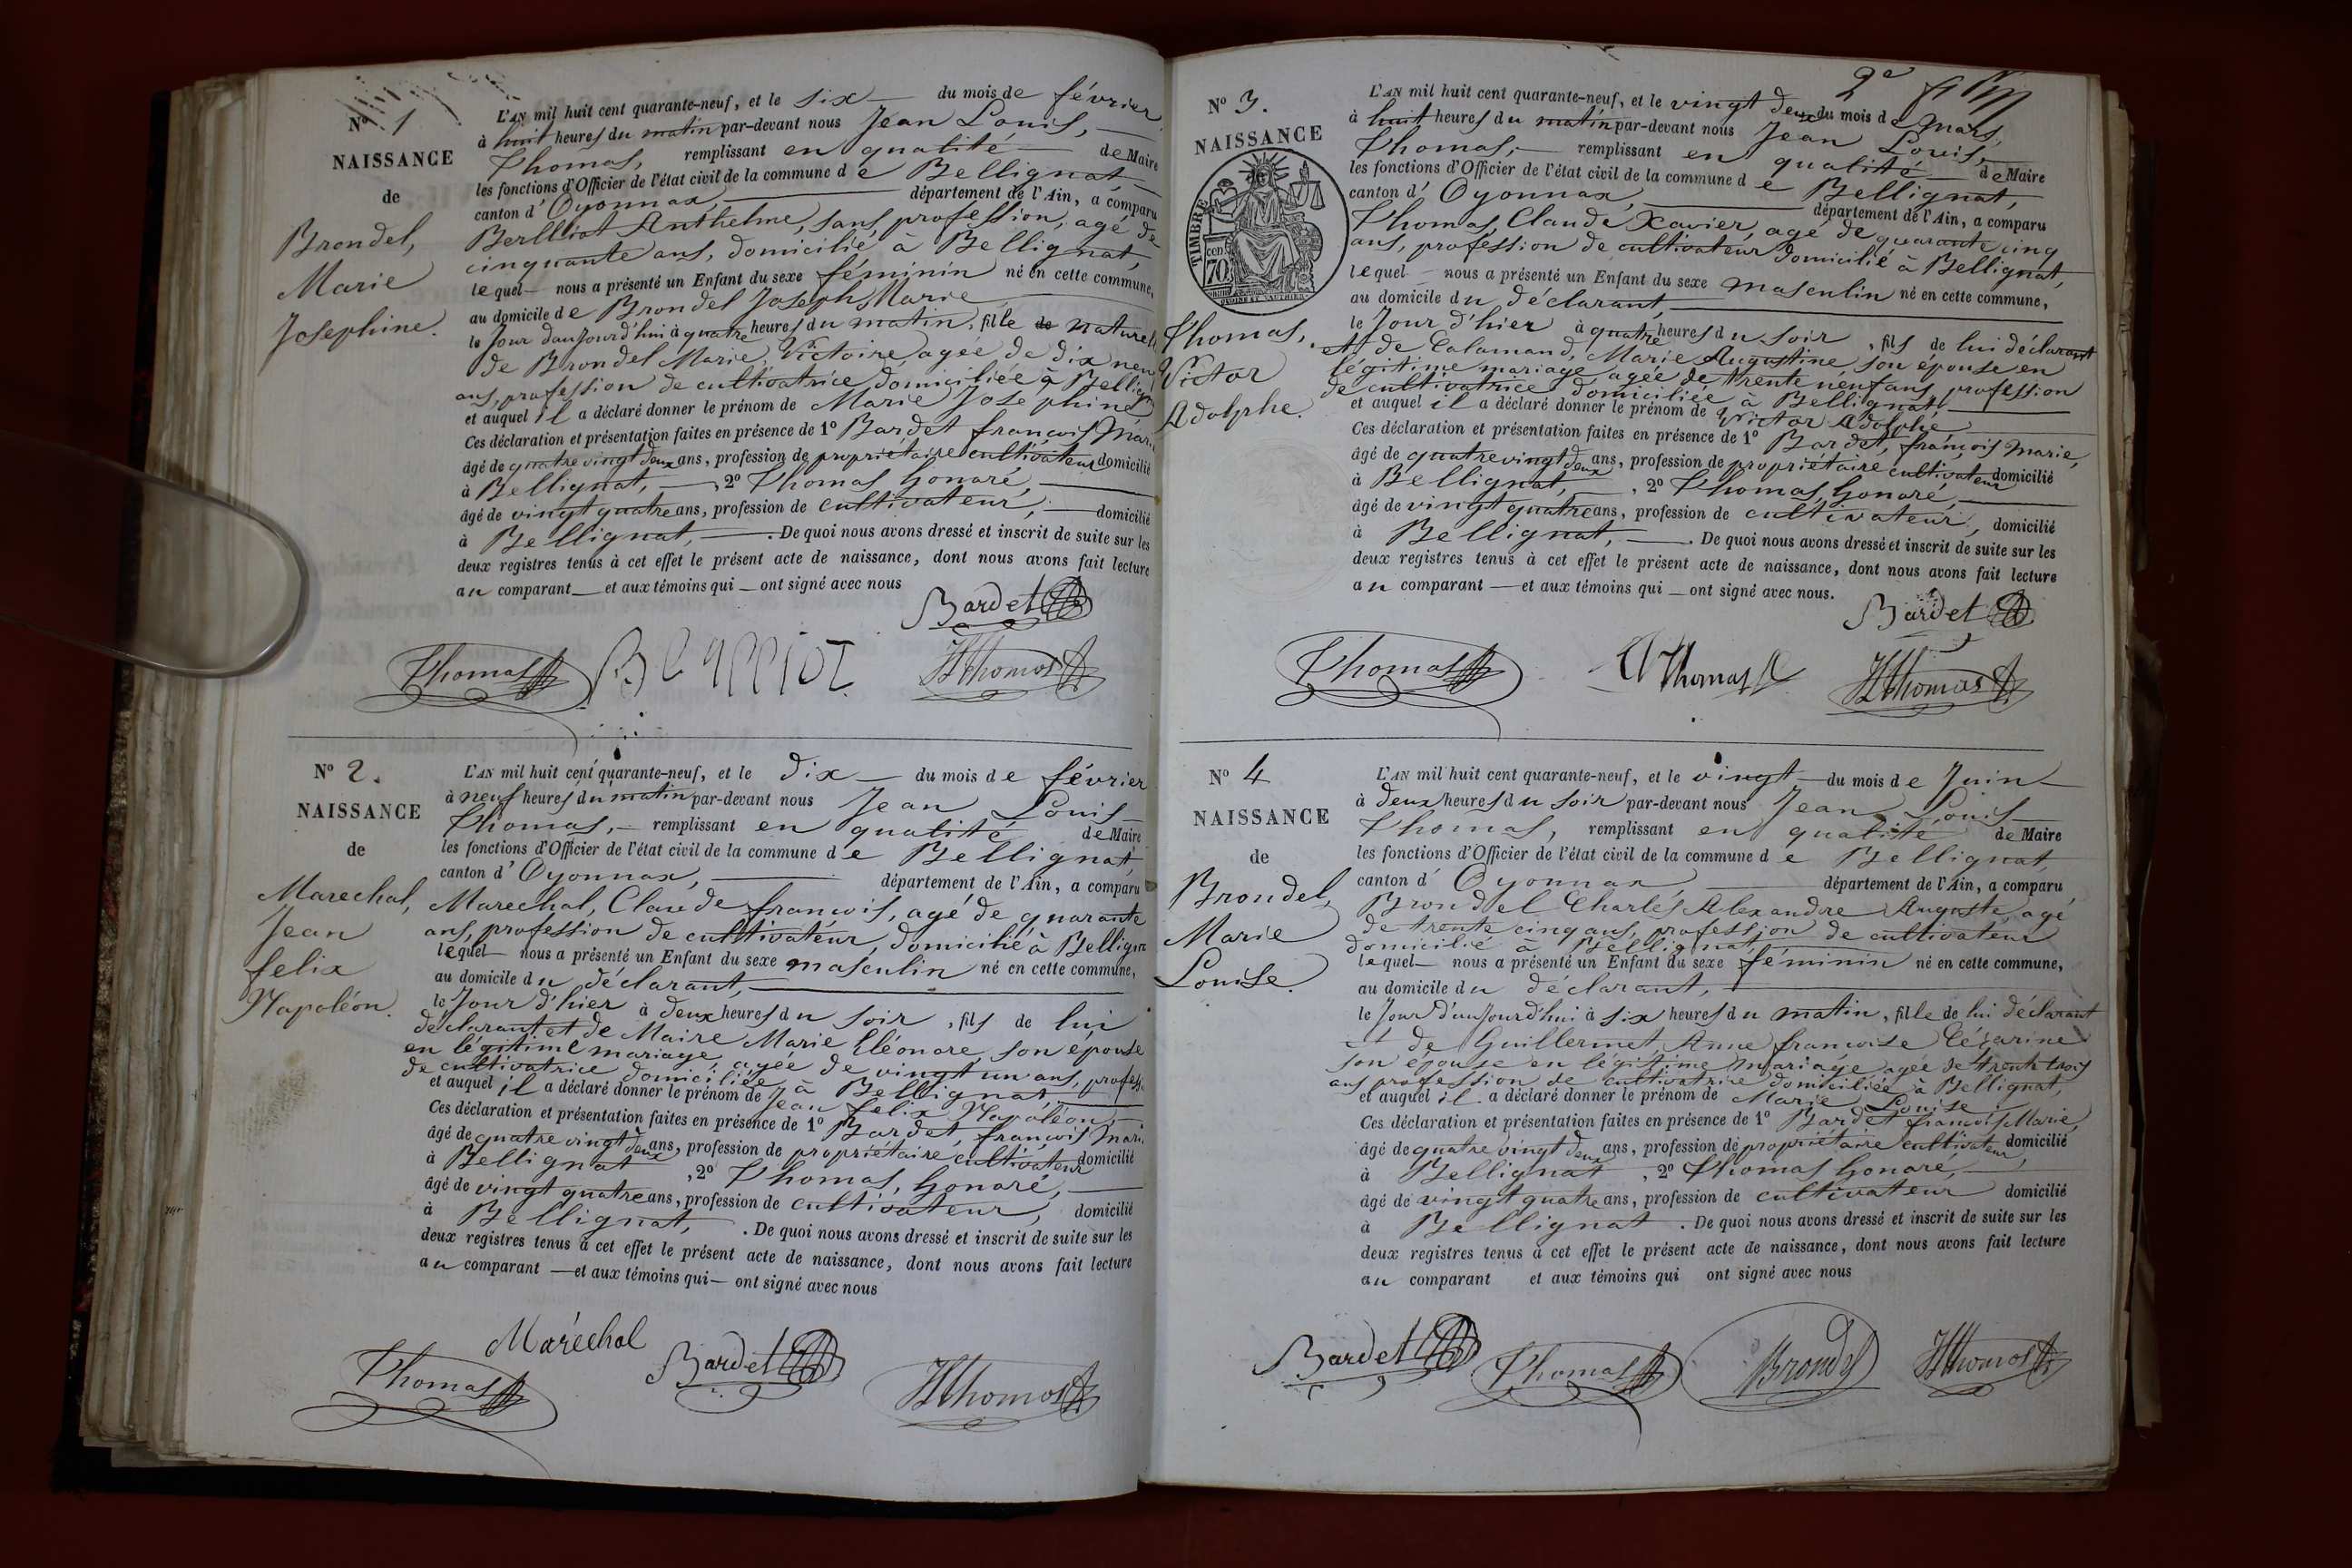 N° 1
NAISSANCE
de
Brondel,
Marie
Josephine.
L'AN mil huit cent quarante-neuf, et le six du mois de février
à huit heures du matin par-devant nous Jean Louis,
Thomas, remplissant en qualité de Maire
les fonctions d'Officier de l'état civil de la commune de Bellignat
canton d'Oyonnax, département de l'Ain, a comparu
Berlliot Anthelme, sans profession, agé de
cinquante ans, domicilié à Bellignat,
lequel nous a présenté un Enfant du sexe féminin né en cette commune,
au domicile de Brondel Joseph Marie
le Jour daujourd'hui à quatre heures du matin, fille de naturel
de Brondel Marie Victoire agée de dix neuf
ans, profession de cultivatrice domiciliée à Bellign
et auquel il a déclaré donner le prénom de Marie Josephine
Ces déclaration et présentation faites en présence de 1° Bardet françois Marie
âgé de quatre vingt deux ans, profession de propriétaire cultivateur domicilié
à Bellignat, 2° Thomas honoré,
âgé de vingt quatre ans, profession de cultivateur, domicilié
à Bellignat, . De quoi nous avons dressé et inscrit de suite sur les
deux registres tenus à cet effet le présent acte de naissance, dont nous avons fait lecture
au comparant et aux témoins qui ont signé avec nous
Bardet
Thomas
HThomas
N° 2.
NAISSANCE
de
Marechal,
Jean
felix
Napoléon.
L'AN mil huit cent quarante-neuf, et le dix du mois de février
à neuf heures du matin par-devant nous Jean Louis
Thomas, remplissant en qualité de Maire
les fonctions d'Officier de l'état civil de la commune de Bellignat,
canton d'Oyonnax, département de l'Ain, a comparu
Marechal, Claude françois, agé de quarante
ans, profession de cultivateur, domicilié à Belligna
lequel nous a présenté un Enfant du sexe masculin né en cette commune,
au domicile du déclarant,
le Jour d'hier à deux heures du soir, fils de lui
déclarant et de Maire Marie Eléonore, son épouse
en légitime mariage, agée de vingt un ans, profess
de cultivatrice domiciliée à Bellignat
et auquel il a déclaré donner le prénom de Jean felix Napoléon,
Ces déclaration et présentation faites en présence de 1° Bardet, françois Mari
âgé de quatre vingt deux ans, profession de propriétaire cultivateur domicilié
à Bellignat, 2° Thomas, honoré,
âgé de vingt quatre ans, profession de cultivateur, domicilié
à Bellignat, . De quoi nous avons dressé et inscrit de suite sur les
deux registres tenus à cet effet le présent acte de naissance, dont nous avons fait lecture
au comparant et aux témoins qui ont signé avec nous
Maréchal
Thomas
Bardet
HThomas
2e
N° 3.
NAISSANCE
TIMBRE
70
Thomas,
Victor
Adolphe.
L'AN mil huit cent quarante-neuf, et le vingt deux du mois de Mars,
à huit heures du matin par-devant nous Jean Louis,
Thomas, remplissant en qualité de Maire
les fonctions d'Officier de l'état civil de la commune de Bellignat,
canton d'Oyonnax, département de l'Ain, a comparu
Thomas, Claude Xavier, agé de quarante cinq
ans, profession de cultivateur domicilié à Bellignat,
lequel nous a présenté un Enfant du sexe masculin né en cette commune,
au domicile du déclarant,
le Jour d'hier à quatre heures du soir, fils de lui déclarant
et de Calamand, Marie Augustine son épouse en
légitime mariage agée de trente neuf ans, profession
de cultivatrice domiciliée à Bellignat,
et auquel il a déclaré donner le prénom de Victor Adolphe
Ces déclaration et présentation faites en présence de 1° Bardet, françois Marie,
âgé de quatre vingt deux ans, profession de propriétaire cultivateur domicilié
à Bellignat, 2° Thomas, honoré,
âgé de vingt quatre ans, profession de cultivateur, domicilié
à Bellignat, . De quoi nous avons dressé et inscrit de suite sur les
deux registres tenus à cet effet le présent acte de naissance, dont nous avons fait lecture
au comparant et aux témoins qui ont signé avec nous.
Bardet
Thomas
Thomas
HThomas
N° 4
NAISSANCE
de
Brondel,
Marie
Louise
L'AN mil huit cent quarante-neuf, et le vingt du mois de Juin
à deux heures du soir par-devant nous Jean Louis
Thomas, remplissant en qualité de Maire
les fonctions d'Officier de l'état civil de la commune de Bellignat
canton d'Oyonnax département de l'Ain, a comparu
Brondel Charles Alexandre Auguste, agé
de trente cinq ans, profession de cultivateur
domicilié à Bellignat
lequel nous a présenté un Enfant du sexe féminin né en cette commune,
au domicile du déclarant,
le Jour d'aujourd'hui à six heures du matin, fille de lui déclarant
et de Guillermet Anne françoise Césarine
son épouse en légitime mariage agée de trente trois
ans profession de cultivatrice domiciliée à Bellignat,
et auquel il a déclaré donner le prénom de Marie Louise
Ces déclaration et présentation faites en présence de 1° Bardet françois Marie,
âgé de quatre vingt deux ans, profession de propriétaire cultivateur domicilié
à Bellignat, 2° Thomas honoré,
âgé de vingt quatre ans, profession de cultivateur domicilié
à Bellignat. De quoi nous avons dressé et inscrit de suite sur les
deux registres tenus à cet effet le présent acte de naissance, dont nous avons fait lecture
au comparant et aux témoins qui ont signé avec nous
Bardet
Thomas
Brondel
HThomas